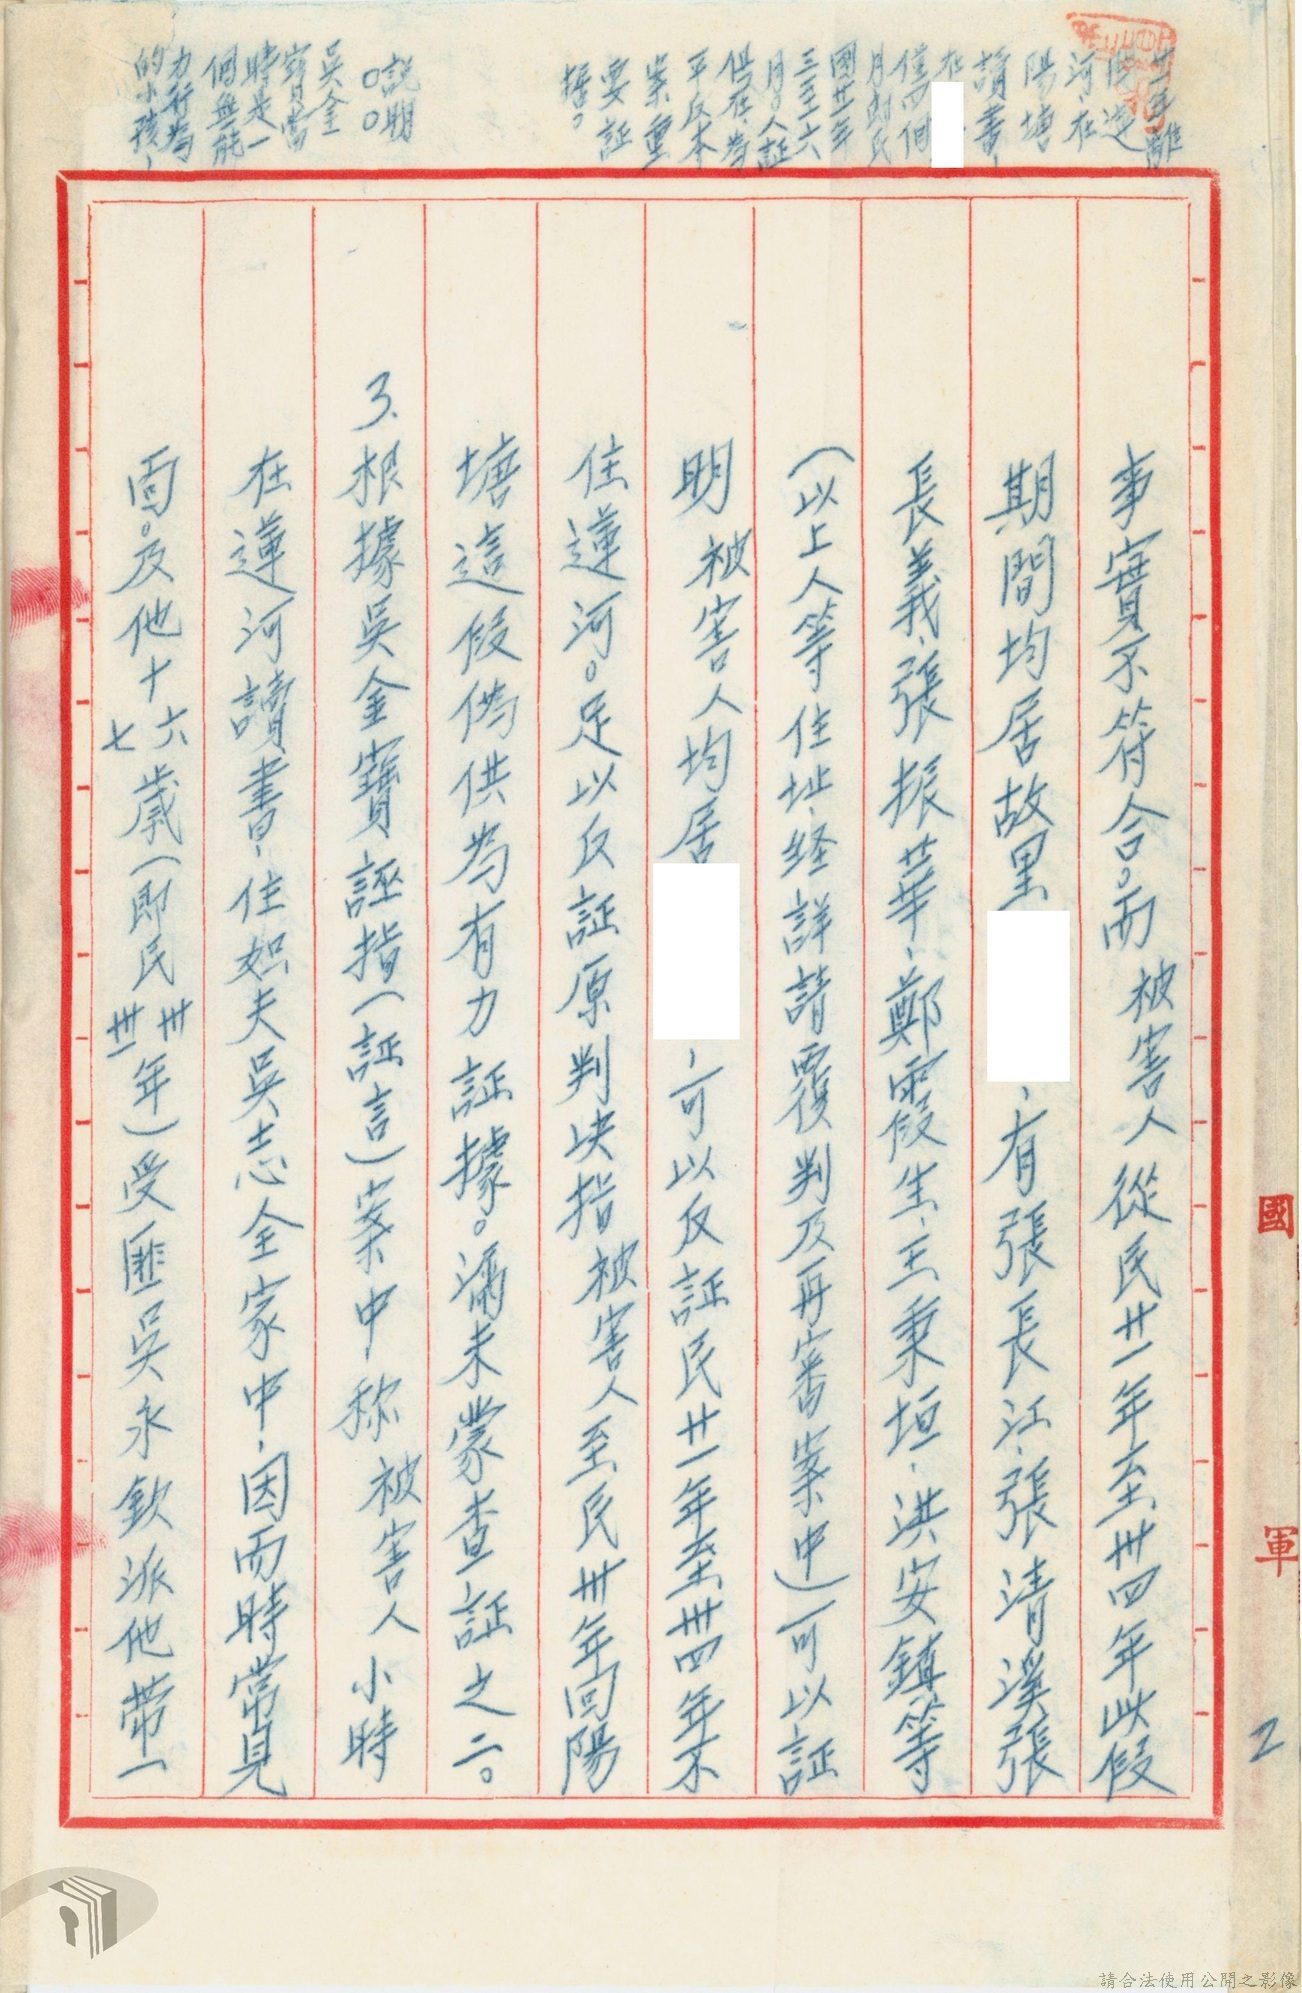 廿一年離
河、在
陽塘
讀書、
在
僅四個
月即民
國廿一年
三至六
月。人証
俱在、為
平反本
案重
要証
據。
説明
○○○
吳金
寶當
時是一
個無能
力行為
的小孩、
事實不符合。而被害人從民廿一年至卅四年此假
期間均居故里、有張長江、張清溪張
長義、張振華、鄭霞生、王秉垣、洪安鎮等
(以上人等住址、経詳請覆判及再審案中)可以証
明被害人均居、可以反証民廿一年至卅四年不
住蓮河。足以反証原判决指被害人至民卅年回陽
塘這假偽供為有力証據。滿未蒙查証之二。
3、根據吳金寶誣指(証言)案中称被害人小時
在蓮河讀書、住姐夫吳志全家中、因而時常見
面。及他十六七歲(即民卅卅一年)受匪吳永欽派他帶一
國
軍
2
請合法使用公開之影像